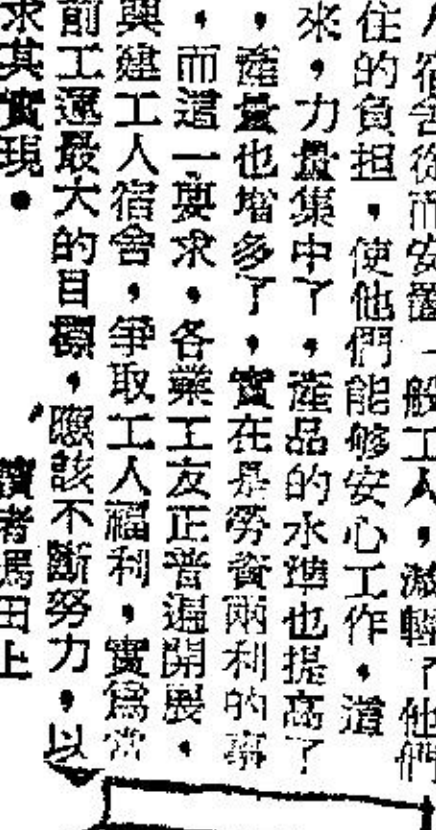 人宿舍從而安置一般工人，減輕了他們
住的負担，使他們能够安心工作，這
來，力量集中了，產品的水準也提高了
，產量也增多了，實在是勞資兩利的事
，而這一要求，各業工友正普遍開展，
興建工人宿舍，爭取工人福利，實爲當
前工運最大的目標，應該不斷努力，以
求其實現。
讀者馮田上